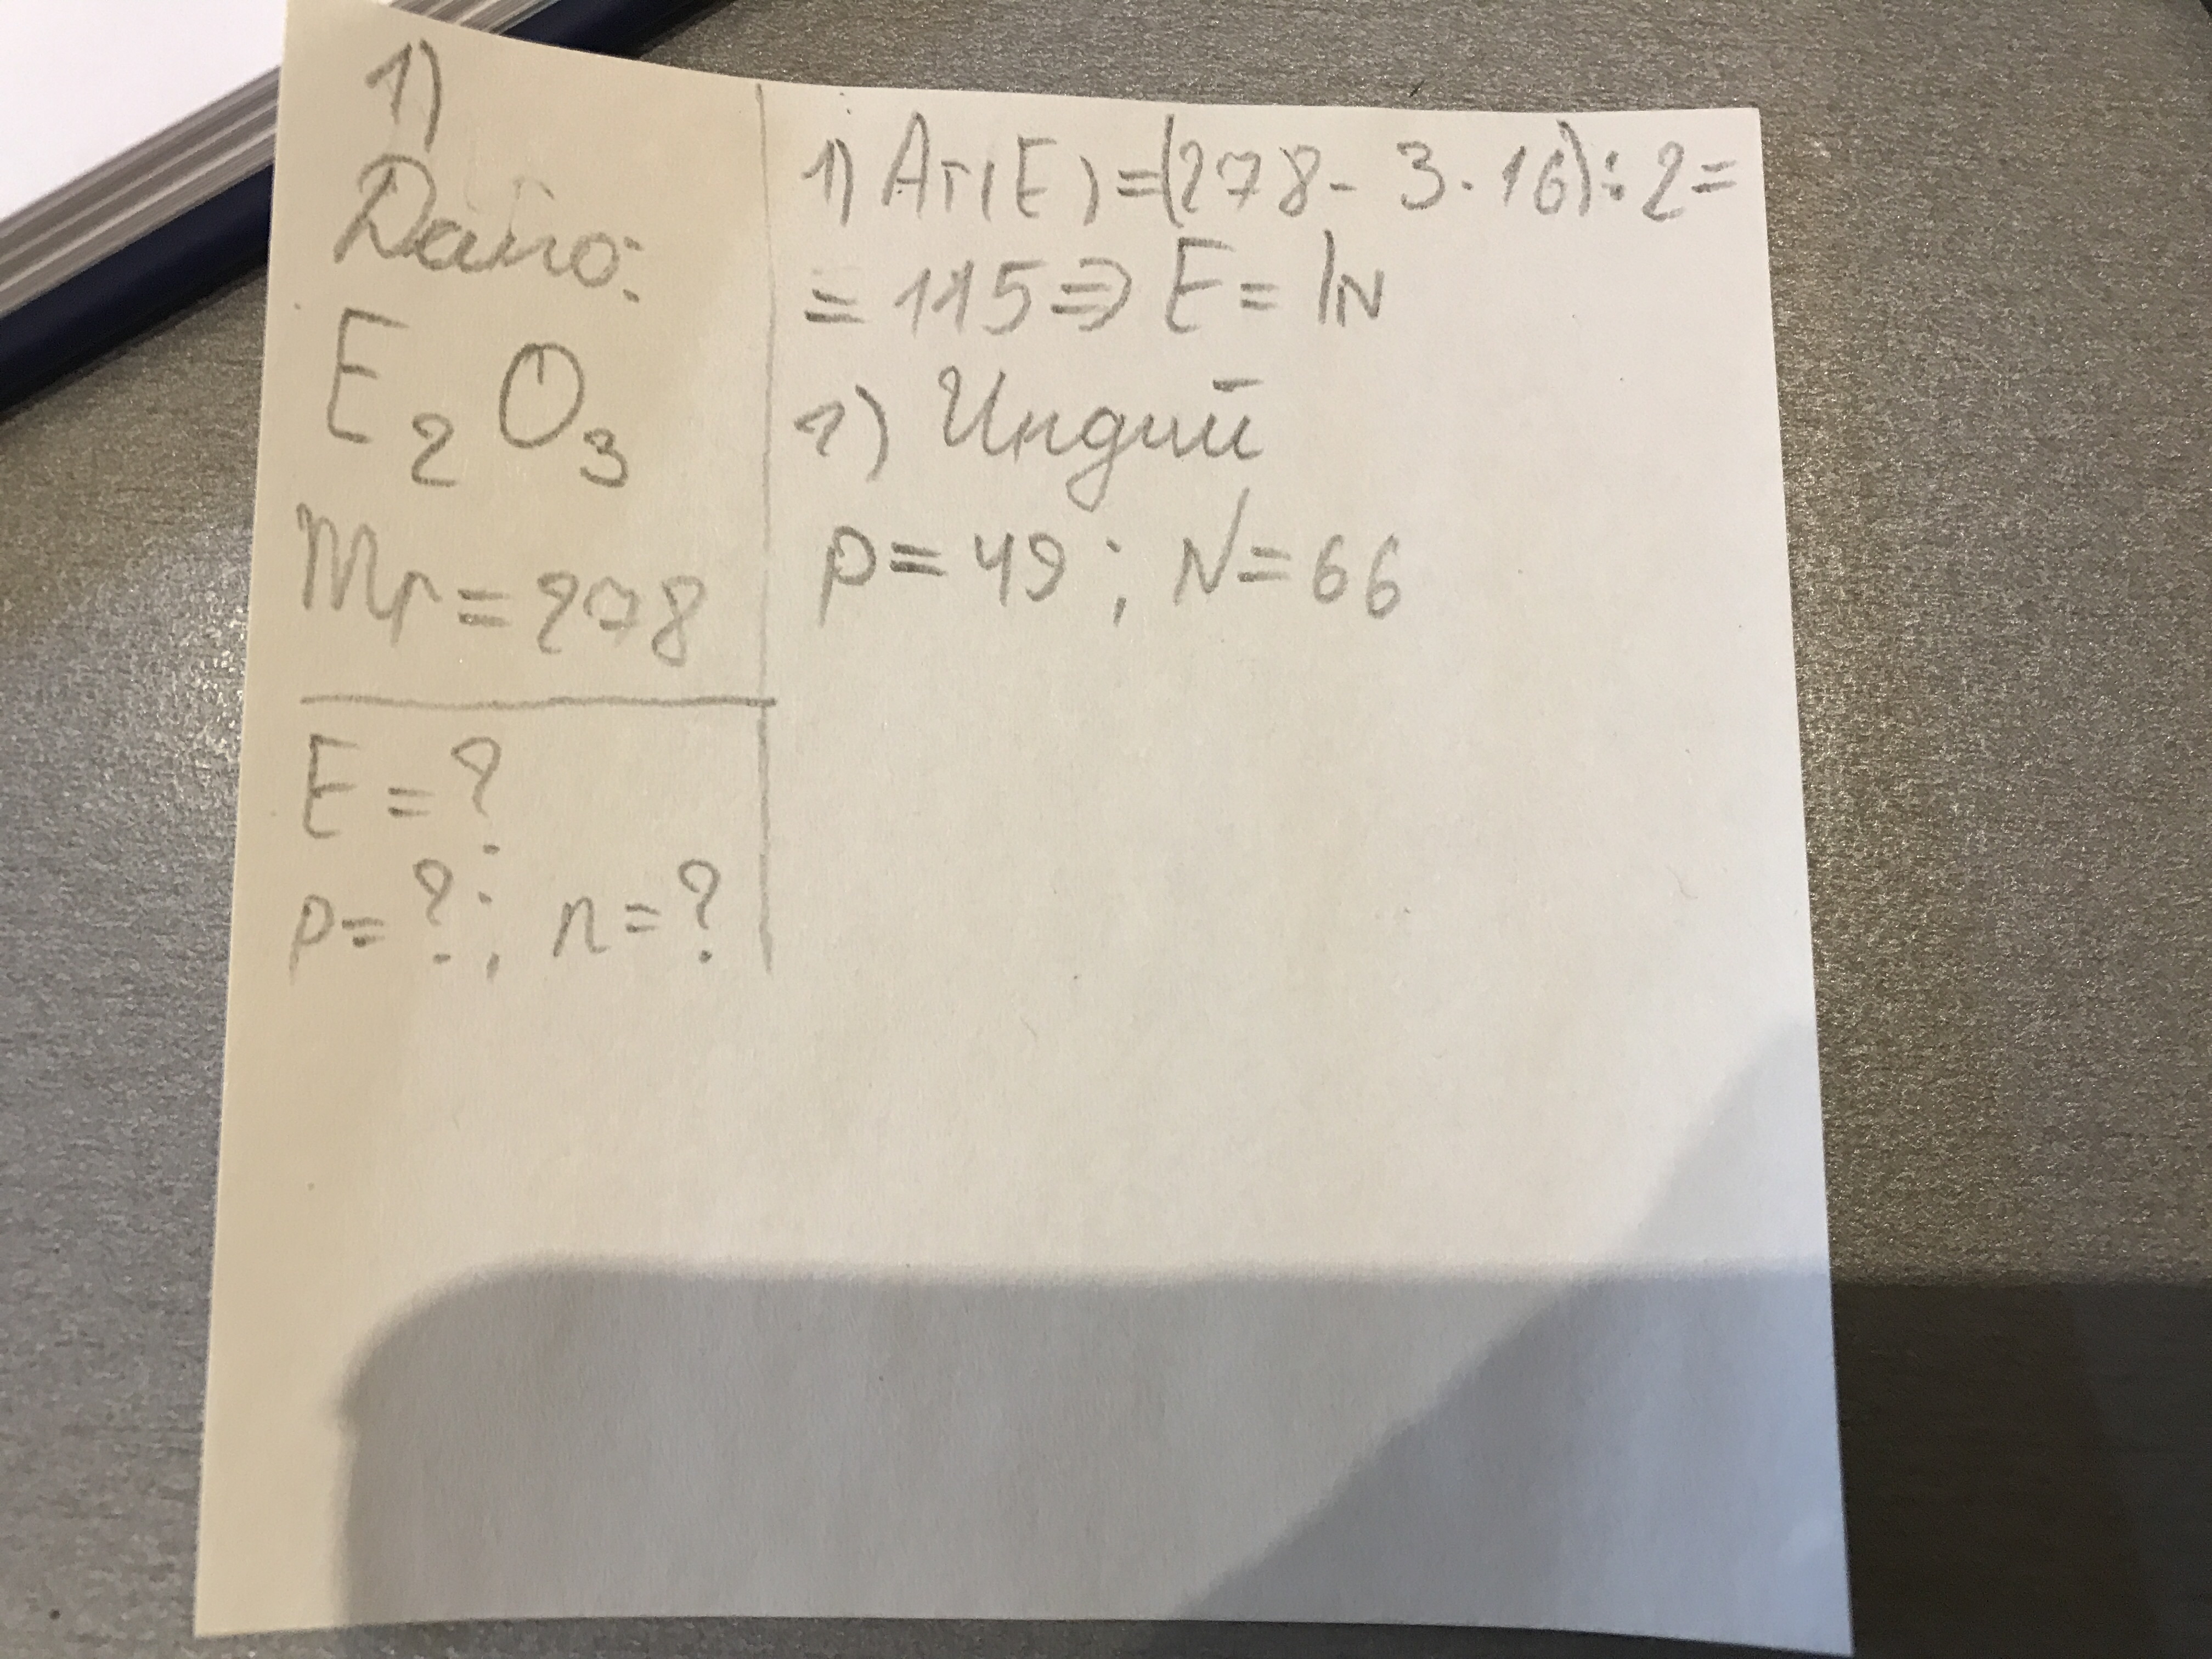 1)
Дано:
E₂O₃
Mr=278
E=?
p=?; n=?
1) Ar(E)=(278-3·16):2=
=115⇒E=In
1) Индий
p=49; N=66